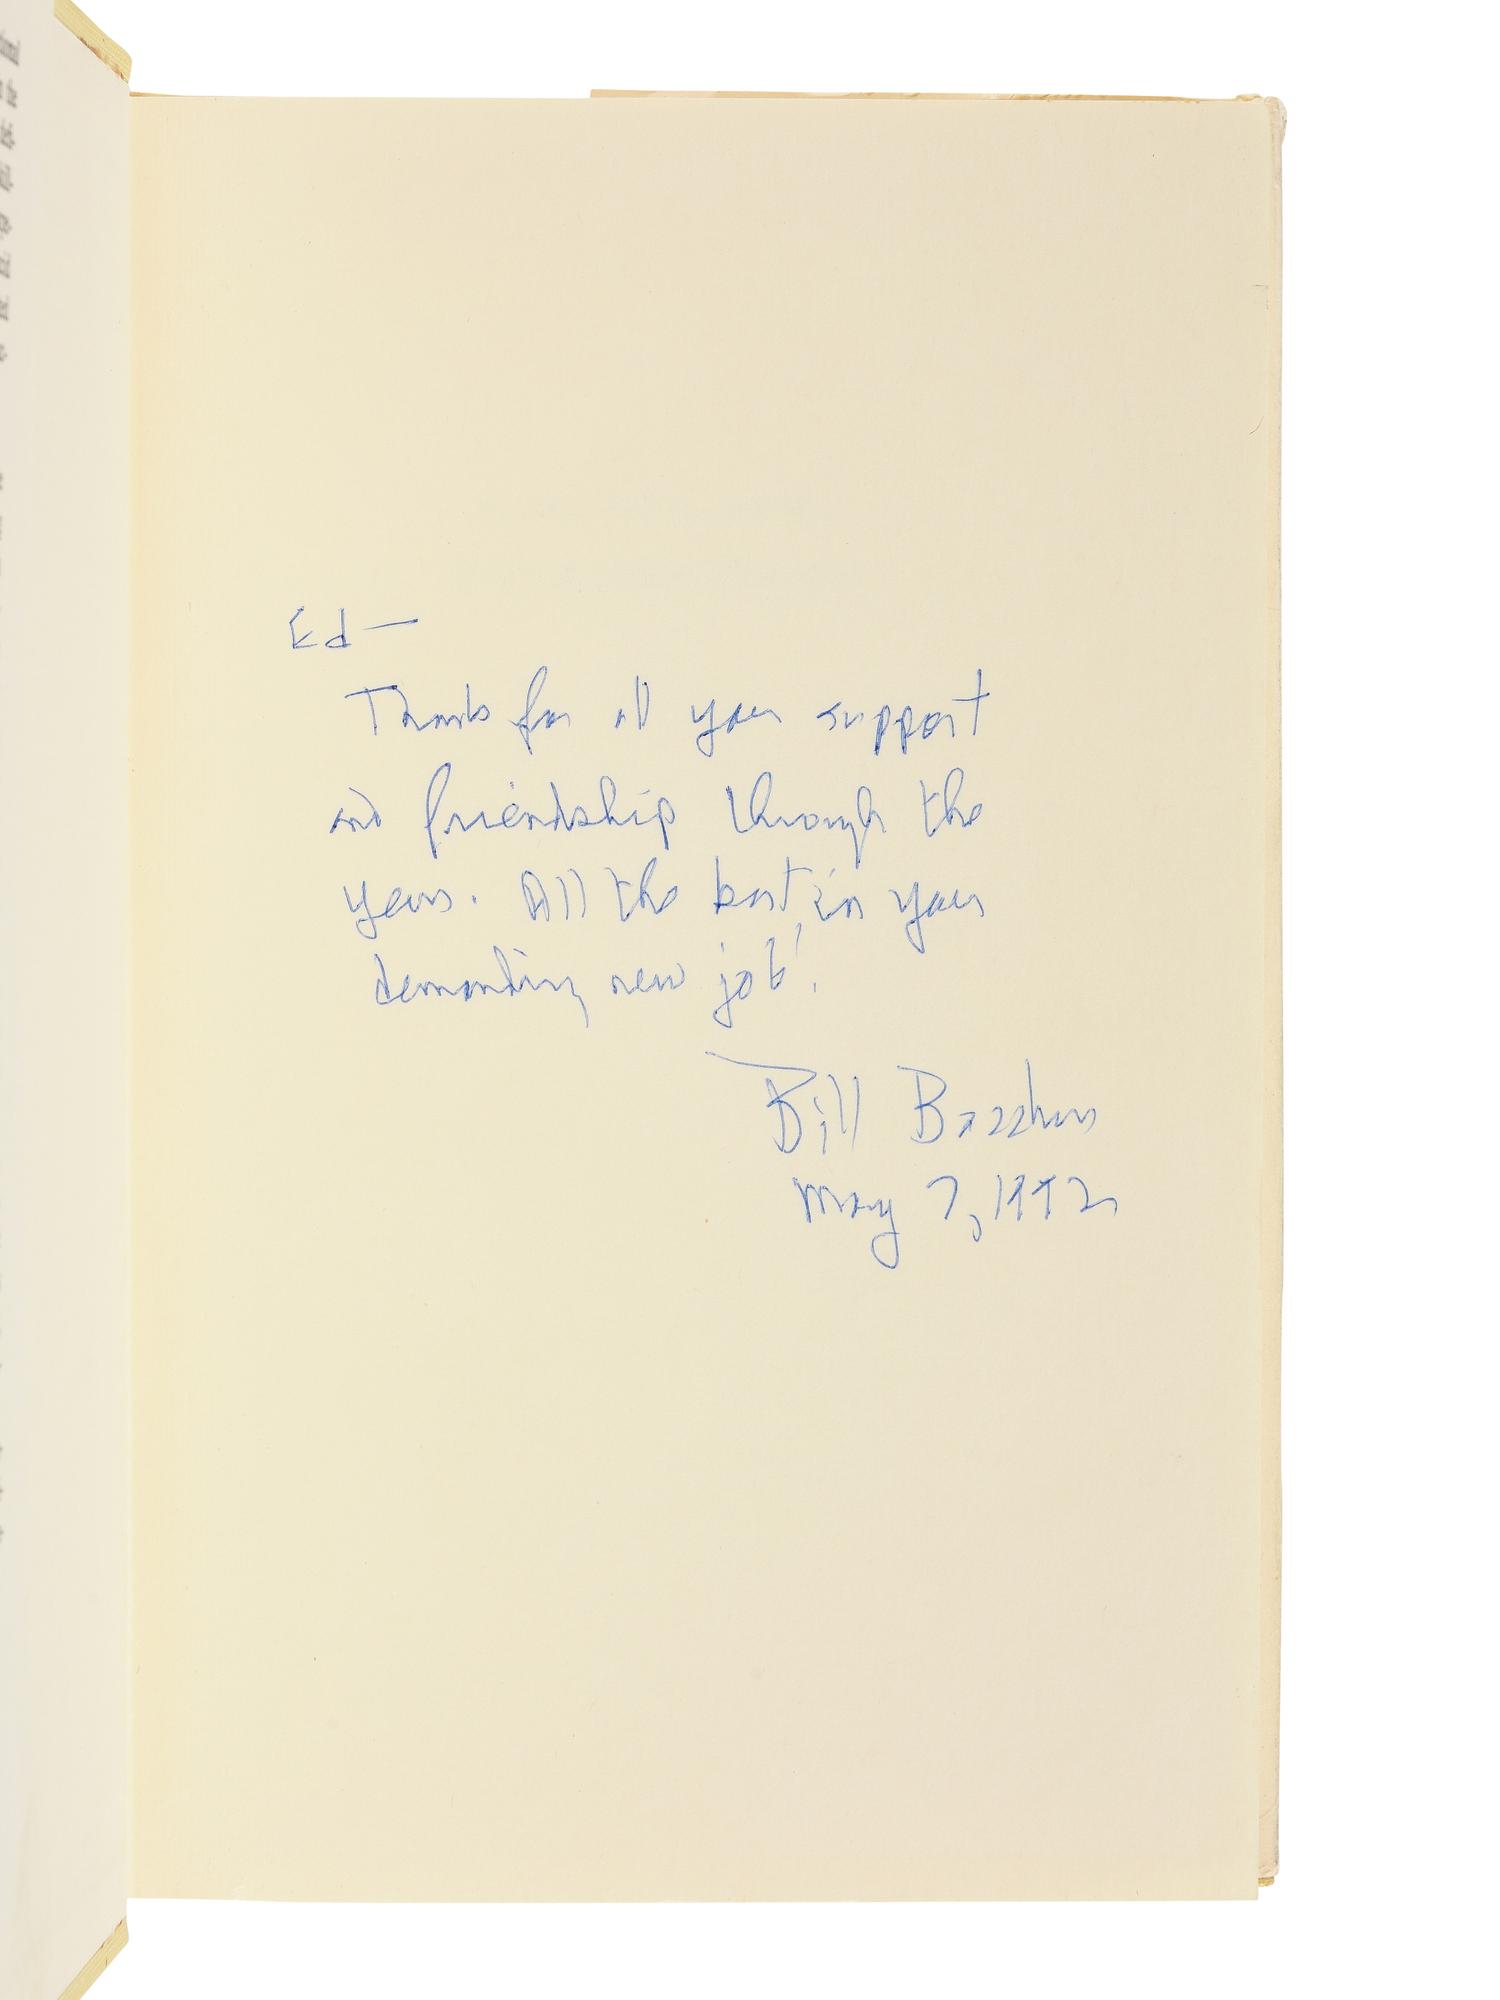 Ed—
Thanks for all your support
and friendship through the
years. All the best in your
demanding new job!
Bill
May 7, 1992